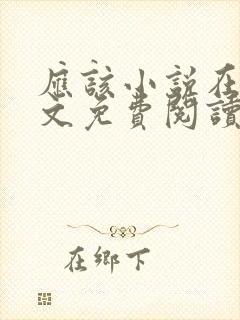 應該小說在
文免費閱讀
在鄉下